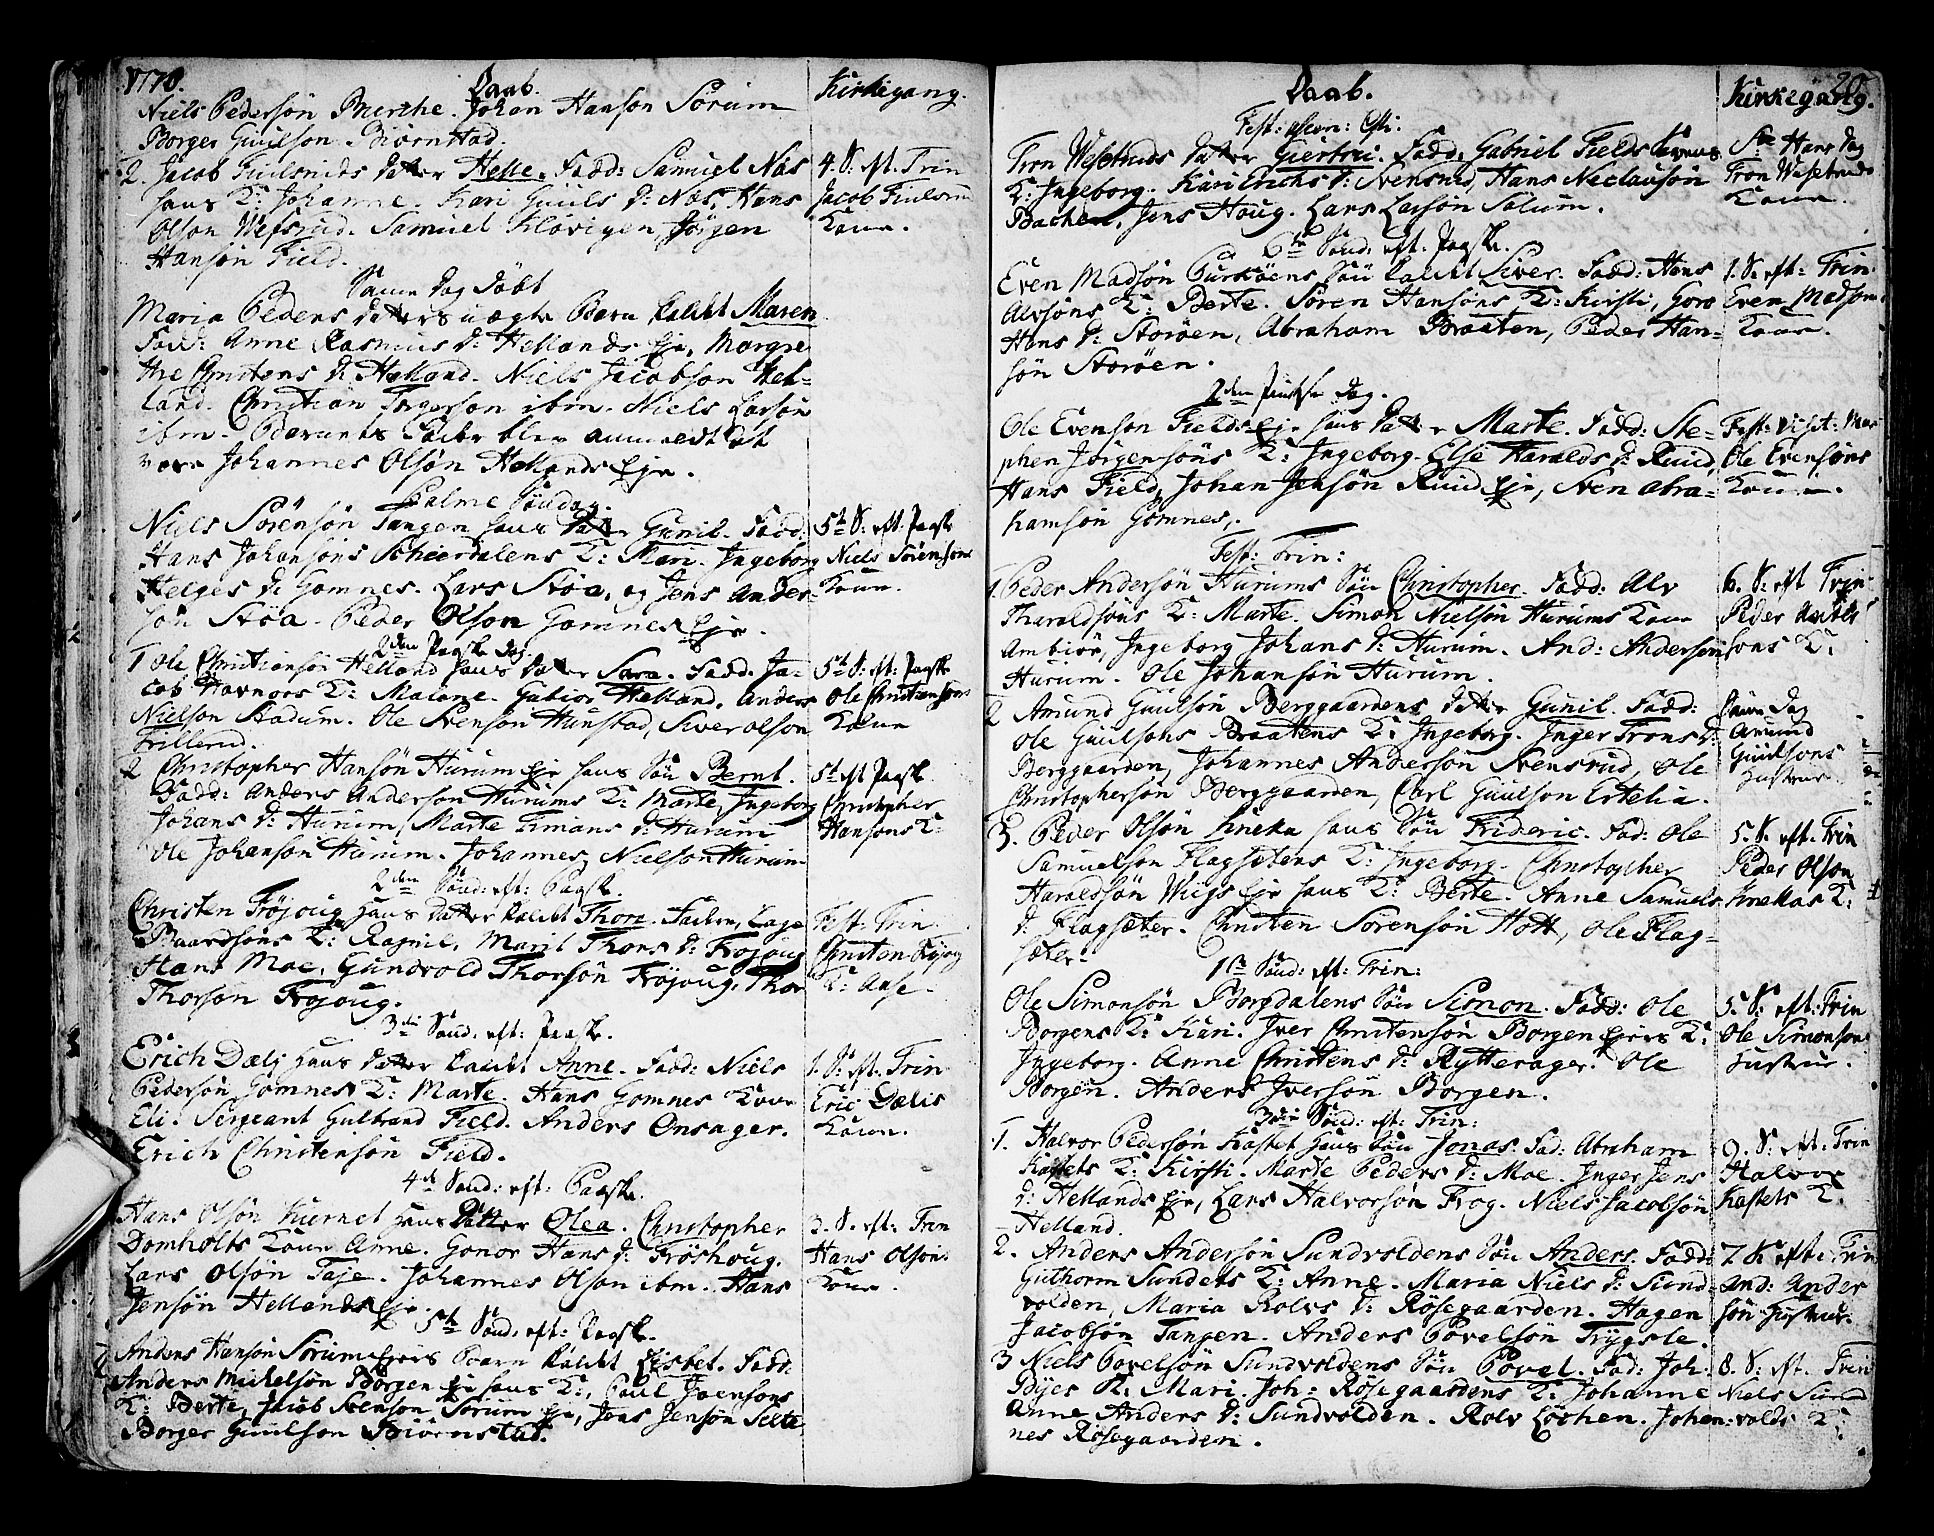 1770.
Daab.
Kirkegang.
Niels Pedersön Bierche. Johan Hanson Sörum
Borger Guulson Biörnstad.
2. Jacob Fiulsruds datter Helle. Fadd: Samuel Næs
hans K: Johanne. Kari Guuls d: Næs, Hans
Olson Wefsrud. Samuel Klövigen, Jörgen
Hansön Field.
4. S: eft. Trin
Jacob Fiulsrud
Kone.
Samme dag döbt
Maria Peders datters uægte Barn kaldt Maren
Fadd: Anne Rasmus d: Hellands Eje, Margre
the Christens d: Helland. Niels Jacobson Hel-
land. Christian Torgerson ibm. Niels Larsön
ibm. Barnets Fader blev anmeldt at
være Johannes Olsön Hellands Eje.
Palme Söndag.
Niels Sörensön Tangen hans datter Gunil. Fadd:
Hans Johansöns Schierdalens K: Mari. Ingeborg
Helges d: Gomnes. Lars Stöa, og Jens Ander-
sön Stöa. Peder Olson Gomnes Eje.
5te S: eft. Paaske
Niels Sörensöns
Kone.
2den Paaske dag.
1 Ole Christiansön Helland hans datter Sara. Fadd: Ja-
cob Havnors K: Malene. Gabior Helland, Anders
Nielson Stadum. Ole Svenson Hunstad, Siver Olson
Trillerud.
5te S: eft: Paaske
Ole Christiansöns
Kone
2 Christopher Hansön Hurum Eje hans Sön Bernt.
Fadd: Anders Anderson Hurums K: Marte, Ingeborg
Johans d: Hurum, Marte Timans d: Hurum
Ole Johanson Hurum. Johannes Nielson Hurum
5te eft Paaske
Christopher
Hansöns K:
2den Sönd: eft: Paaske.
Christen Fröjoug hans datter kaldt Thore. Fadder, Lage
Baardsöns K: Ragnil, Maril Thors d: Frojoug
Hans Moe, Gundvold Thorsön Fröjoug, Thor
Thorson Frojoug.
Fest: Trin
Christen Fröjoug
K: Aase.
3die Sönd: eft: Paaske.
Erich Dælj hans datter kaldt Anne. Fadd: Niels
Pedersön Gomnes K: Marte. Hans Gomnes Kone
Eli. Sergeant Gulbrand Field. Anders Onsager.
Erich Christensön Field.
1. S: eft. Trin
Eric Dælis
Kone.
4de Sönd: eft: Paaske.
Hans Olsön Kiernet hans datter Olea. Christopher
Domholts Kone Anne. Gonor Hans d: Fröshoug.
Lars Olsön Taje. Johannes Olson ibm. Hans
Jensön Hellands Eje.
3. S. eft: Trin
Hans Olsöns
Kone.
5te Sönd: eft: Paaske.
Anders Hansön Sörum Ejers Barn kaldt Lisbet. Fadd:
Anders Mickelsön Borgen Eje hans K:, Poul Joensöns
K: Berte, Jacob Svenson Sörum Eje, Jens Jensön Selte
Borger Guulson Biörnstad.
Daab.
Kirkegang.
Fest: ascen: Chr:
Tron Wesetruds datter Giertrui. Fadd: Gabriel Fields Svens
K: Ingeborg. Kari Erichs d: Svensrud, Hans Neclausön
Bachen, Jens Houg. Lars Larsön Solum.
Ste Hans Dag
Tron Wesetruds
Kone.
6te Sönd: eft. Paaske.
Even Madsön Purköens Sön kaldt Siver. Fadd: Hans
Alvsöns K: Berte. Sören Hansöns K: Kirsti, Goro
Hans d: Storöen, Abraham Braaten, Peder Han-
sön Storöen.
1. S: eft: Trin
Even Madsöns
Kone.
2den Pintse dag.
Ole Evenson Fields Eje hans datter Marte. Fadd: Ste-
phen Jörgensöns K: Ingeborg. Else Haralds d: Ruud,
Hans Field, Johan Jensön Ruud Eje, Sven Abra-
hamsön Gomnes,.
Fest: Visit: Mar
Ole Evensöns
Kone.
Fest: Trin:
1. Peder Andersön Hurums Sön Christopher. Fadd: Alv
Tharaldsöns K: Marte. Simon Nielsön Hurums Kone
Ambiör, Ingeborg Johans d: Hurum. And: Anderson
Hurum. Ole Johansön Hurum.
6. S: eft Trin
Peder Anders
söns K:
2 Amund Guulsön Berggaardens datter Gunil. Fadd:
Ole Guulsöns Braatens K: Ingeborg. Inger Trons d:
Berggaarden, Johannes Anderson Svensrud, Ole
Christophersön Berggaarden, Carl Guulson Ertelia.
Same Dag
Amund
Guulsöns
Hustrue.
3. Peder Olsön Kneka hans Sön Frideric. Fad: Ole
Samuelson Flagsætens K: Ingeborg. Christopher
Haraldsön Wiigs Eje hans K: Berte. Anne Samuels
d: Flagsæter. Christen Sörensön Hott, Ole Flag-
sæter.
5. S. eft. Trin
Peder Olson
Knekas K:
1te Sönd: eft: Trin:
Ole Simonsön Borgdalens Sön Simon. Fadd: Ole
Borgens K: Kari. Iver Christensön Borgen Ejers K:
Ingeborg. Anne Christens d: Rytterager. Ole
Borgen. Anders Iversön Borgen.
5. S: eft: Trin
Ole Simonsöns
Hustrue.
3die Sönd: eft: Trin:
1. Halvor Pedersön Kastet hans Sön Jonas. Fad: Abraham
Kastets K: Kirsti. Marte Peders d: Moe. Inger Jens
d: Hellands Eje, Lars Halvorsön Frog. Niels Jacobsön
Helland.
9. S: eft: Trin
Halvor
Kastets K:
2. Anders Andersön Sundvoldens Sön Anders. Fadd:
Guthorm Sundets K: Anne. Maria Niels d: Sund-
volden, Maria Rolvs d: Rösegaarden. Hagen
Jacobsön Tangen. Anders Povelsön Trögsle.
7. S: eft: Trin
And: Ander
sön Hustrue.
3 Niels Povelsön Sundvoldens Sön Povel. Fad: Joh.
Byes K: Mari. Joh: Rösegaardens K: Johanne
Anne Anders d: Sundvolden. Rolv Löchen. Johan-
nes Rösegaarden.
8. S: eft. Trin
Niels Sund
volds K: